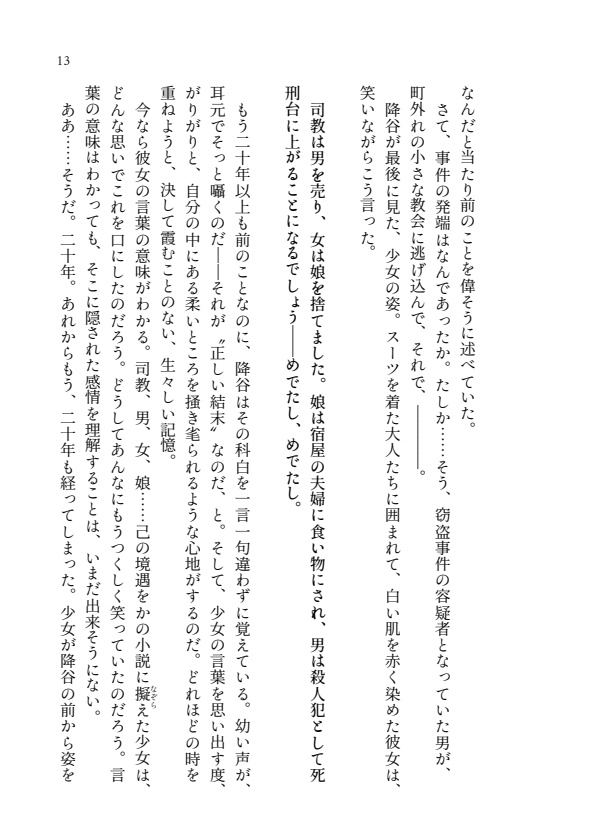 13
なんだと当たり前のことを偉そうに述べていた。
さて、事件の発端はなんであったか。たしか……そう、窃盗事件の容疑者となっていた男が、
町外れの小さな教会に逃げ込んで、それで、――――。
降谷が最後に見た、少女の姿。スーツを着た大人たちに囲まれて、白い肌を赤く染めた彼女は、
笑いながらこう言った。
司教は男を売り、女は娘を捨てました。娘は宿屋の夫婦に食い物にされ、男は殺人犯として死
刑台に上がることになるでしょう――めでたし、めでたし。
もう二十年以上も前のことなのに、降谷はその科白を一言一句違わずに覚えている。幼い声が、
耳元でそっと囁くのだ――それが〝正しい結末〟なのだ、と。そして、少女の言葉を思い出す度、
がりがりと、自分の中にある柔いところを掻き毟られるような心地がするのだ。どれほどの時を
重ねようと、決して霞むことのない、生々しい記憶。
今なら彼女の言葉の意味がわかる。司教、男、女、娘……己の境遇をかの小説に擬えた少女は、
なぞら
どんな思いでこれを口にしたのだろう。どうしてあんなにもうつくしく笑っていたのだろう。言
葉の意味はわかっても、そこに隠された感情を理解することは、いまだ出来そうにない。
ああ……そうだ。二十年。あれからもう、二十年も経ってしまった。少女が降谷の前から姿を